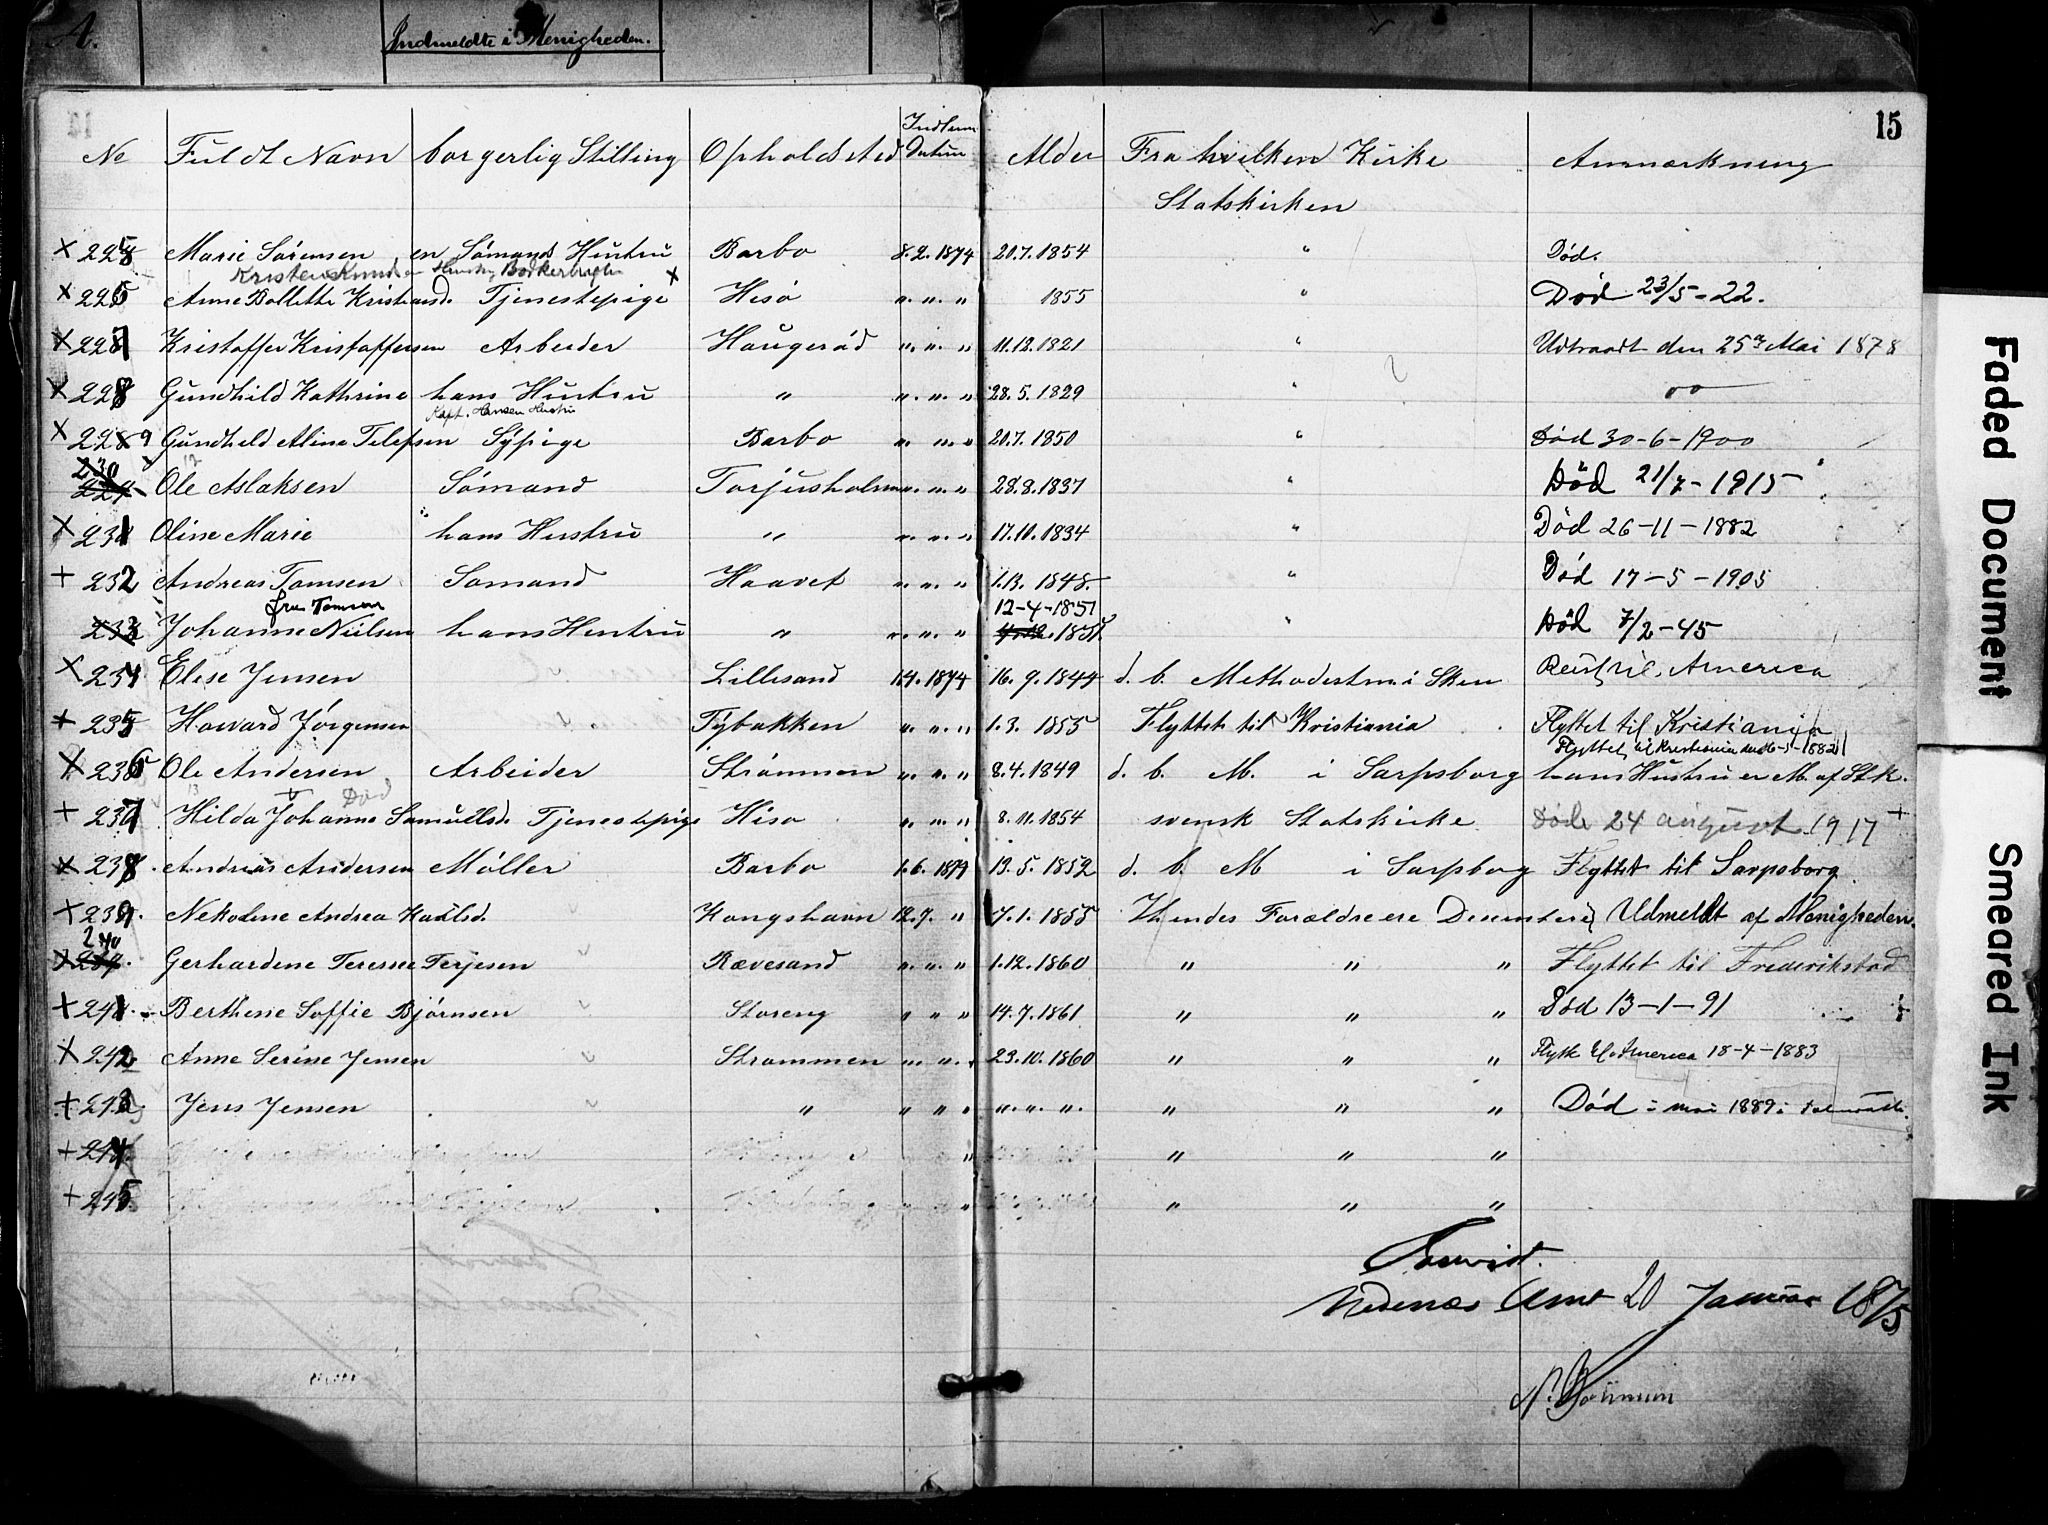 A.
Indmeldte i Menigheden.
15
No Fuldt Navn borgerlig Stilling Opholdsted Indlem Datum Alder Fra hvilken Kirke Anmærkning
Statskirken
× 225 Marie Sørensen en Sømands Hustru Barbo 8.2.1874 20.7.1854 " Død.
Hustru
× 226 Anne Bollette Tjenestepige × Hisø " " " 1855 " Død 23/5-22.
× 227 Kristoffer Kristoffersen Arbeider Haugerød " " " 11.12.1821 " Udtraadt den 25 Mai 1878
× 228 Gundhild Kathrine hans Hustru " " " " 28.5.1829 "
Kapt. Hansen Hustru
× 229 Gundhild Aline Sÿpige Barbo " " " 20.7.1850 " Død 30-6-1900
230 Ole Aslaksen Sømand Torjusholm " " " 28.8.1837 " Død 21/7-1915
× 231 Oline Marie hans Hustru " " " " 17.10.1834 " Død 26-11-1882
+ 232 Andreas Tomsen Sømand Haavet " " " 1848 " Død 17-5-1905
fru Tomsen
12-4-1851
233 Johanne Nielsen hans Hustru " " " " " Død 7/2-45
× 234 Elise Jensen Lillesand 1874 16.9.1844 d. b. Methodistm. i Skien Reist til America
+ 235 Havard Jørgensen Tÿbakken " " " 1.3.1855 Flyttet til Kristiania Flyttet til Kristiania
Flyttet til Kristiania den 16-5-1882
× 236 Ole Andersen Arbeider Strømmen " " " 8.4.1849 d. b. M. i Sarpsborg hans Hustru er M. af St.K.
Død
+ 237 Hilda Johanne Samuelsd. Tjenestepige Hisø " " " 8.11.1854 svensk Statskirke Døde 24 august 1917 +
× 238 Andreas Andersen Møller Barbo 1.6.1874 13.5.1852 d. b. M i Sarpsborg Flyttet til Sarpsborg
+ 239. Nekoline Andrea Kongshavn 12.7. " 7.1.1855 Hendes Forældre ere Udmeldt af Menigheden.
240
× Gerhardene Terese Terjesen Rævesand " " " 1.12.1860 " " " Flyttet til Frederikstad
+ 241. Berthine Soffie Bjørnsen Storeng " " " 14.7.1861 " " " Død 13-1-91
× 242 Anne Serine Jensen Strømmen " " " 23.10.1860 " " " Flytt til America 18-4-1883
+ 243 Jens Jensen " " " " " " " " " " Død i mai 1889 i
+ 244 " " " "
+ 245 " " " "
Nedenæs Amt 20 Januar 1875
Faded Document
Smeared Ink